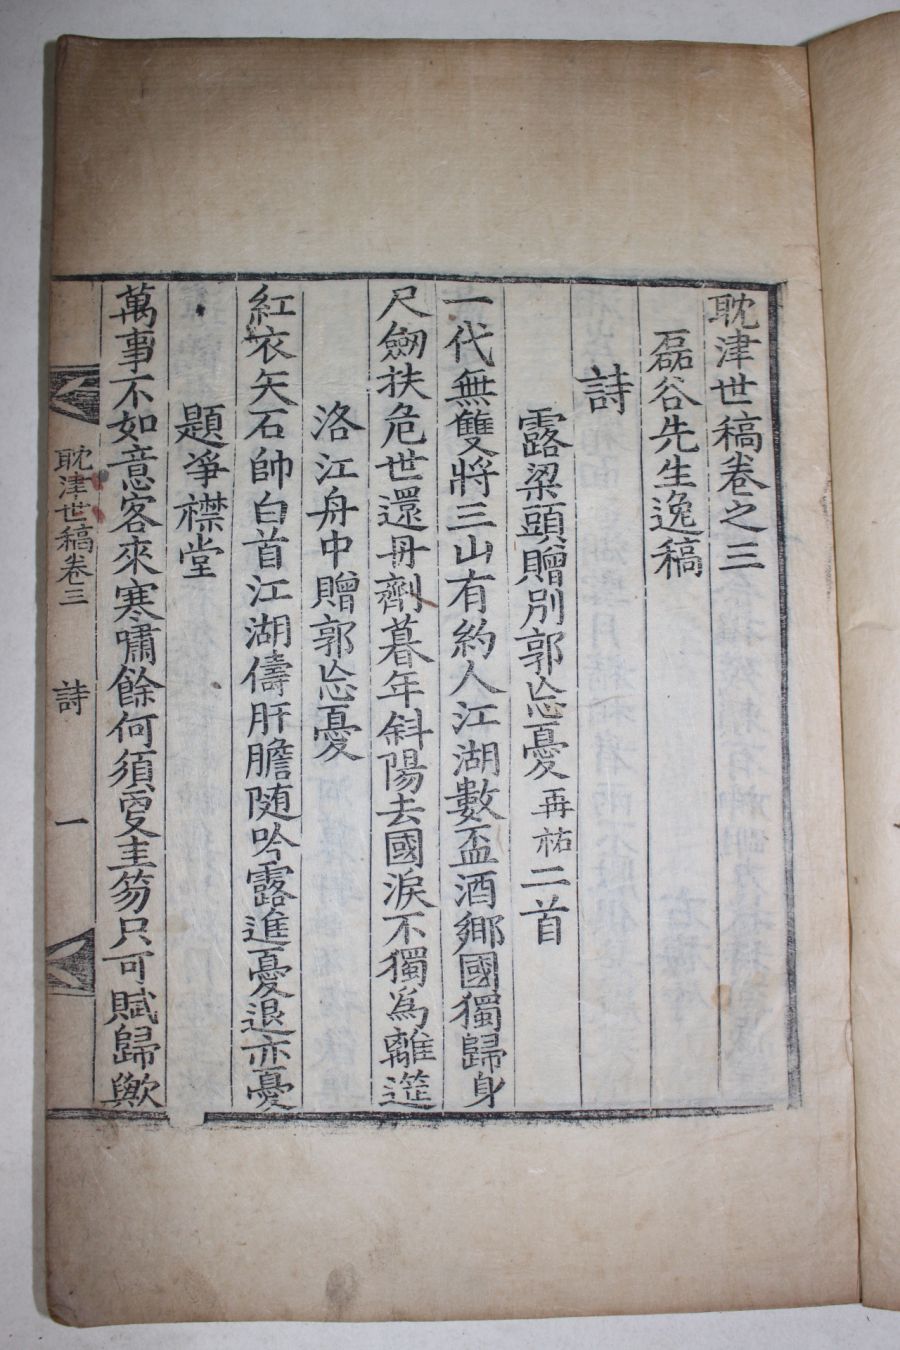 耽津世稿卷之三
磊谷先生逸稿
詩
露梁頭贈別郭忘憂再祐二首
一代無雙將三山有約人江湖數盃酒鄉國獨歸身
尺劒扶危世還丹劑暮年斜陽去國淚不獨爲離筵
洛江舟中贈郭忘憂
紅衣矢石帥白首江湖儔肝膽随吟露進憂退亦憂
題爭襟堂
萬事不如意客來寒嘯餘何須憂圭笏只可賦歸歟
耽津世稿卷三 詩 一